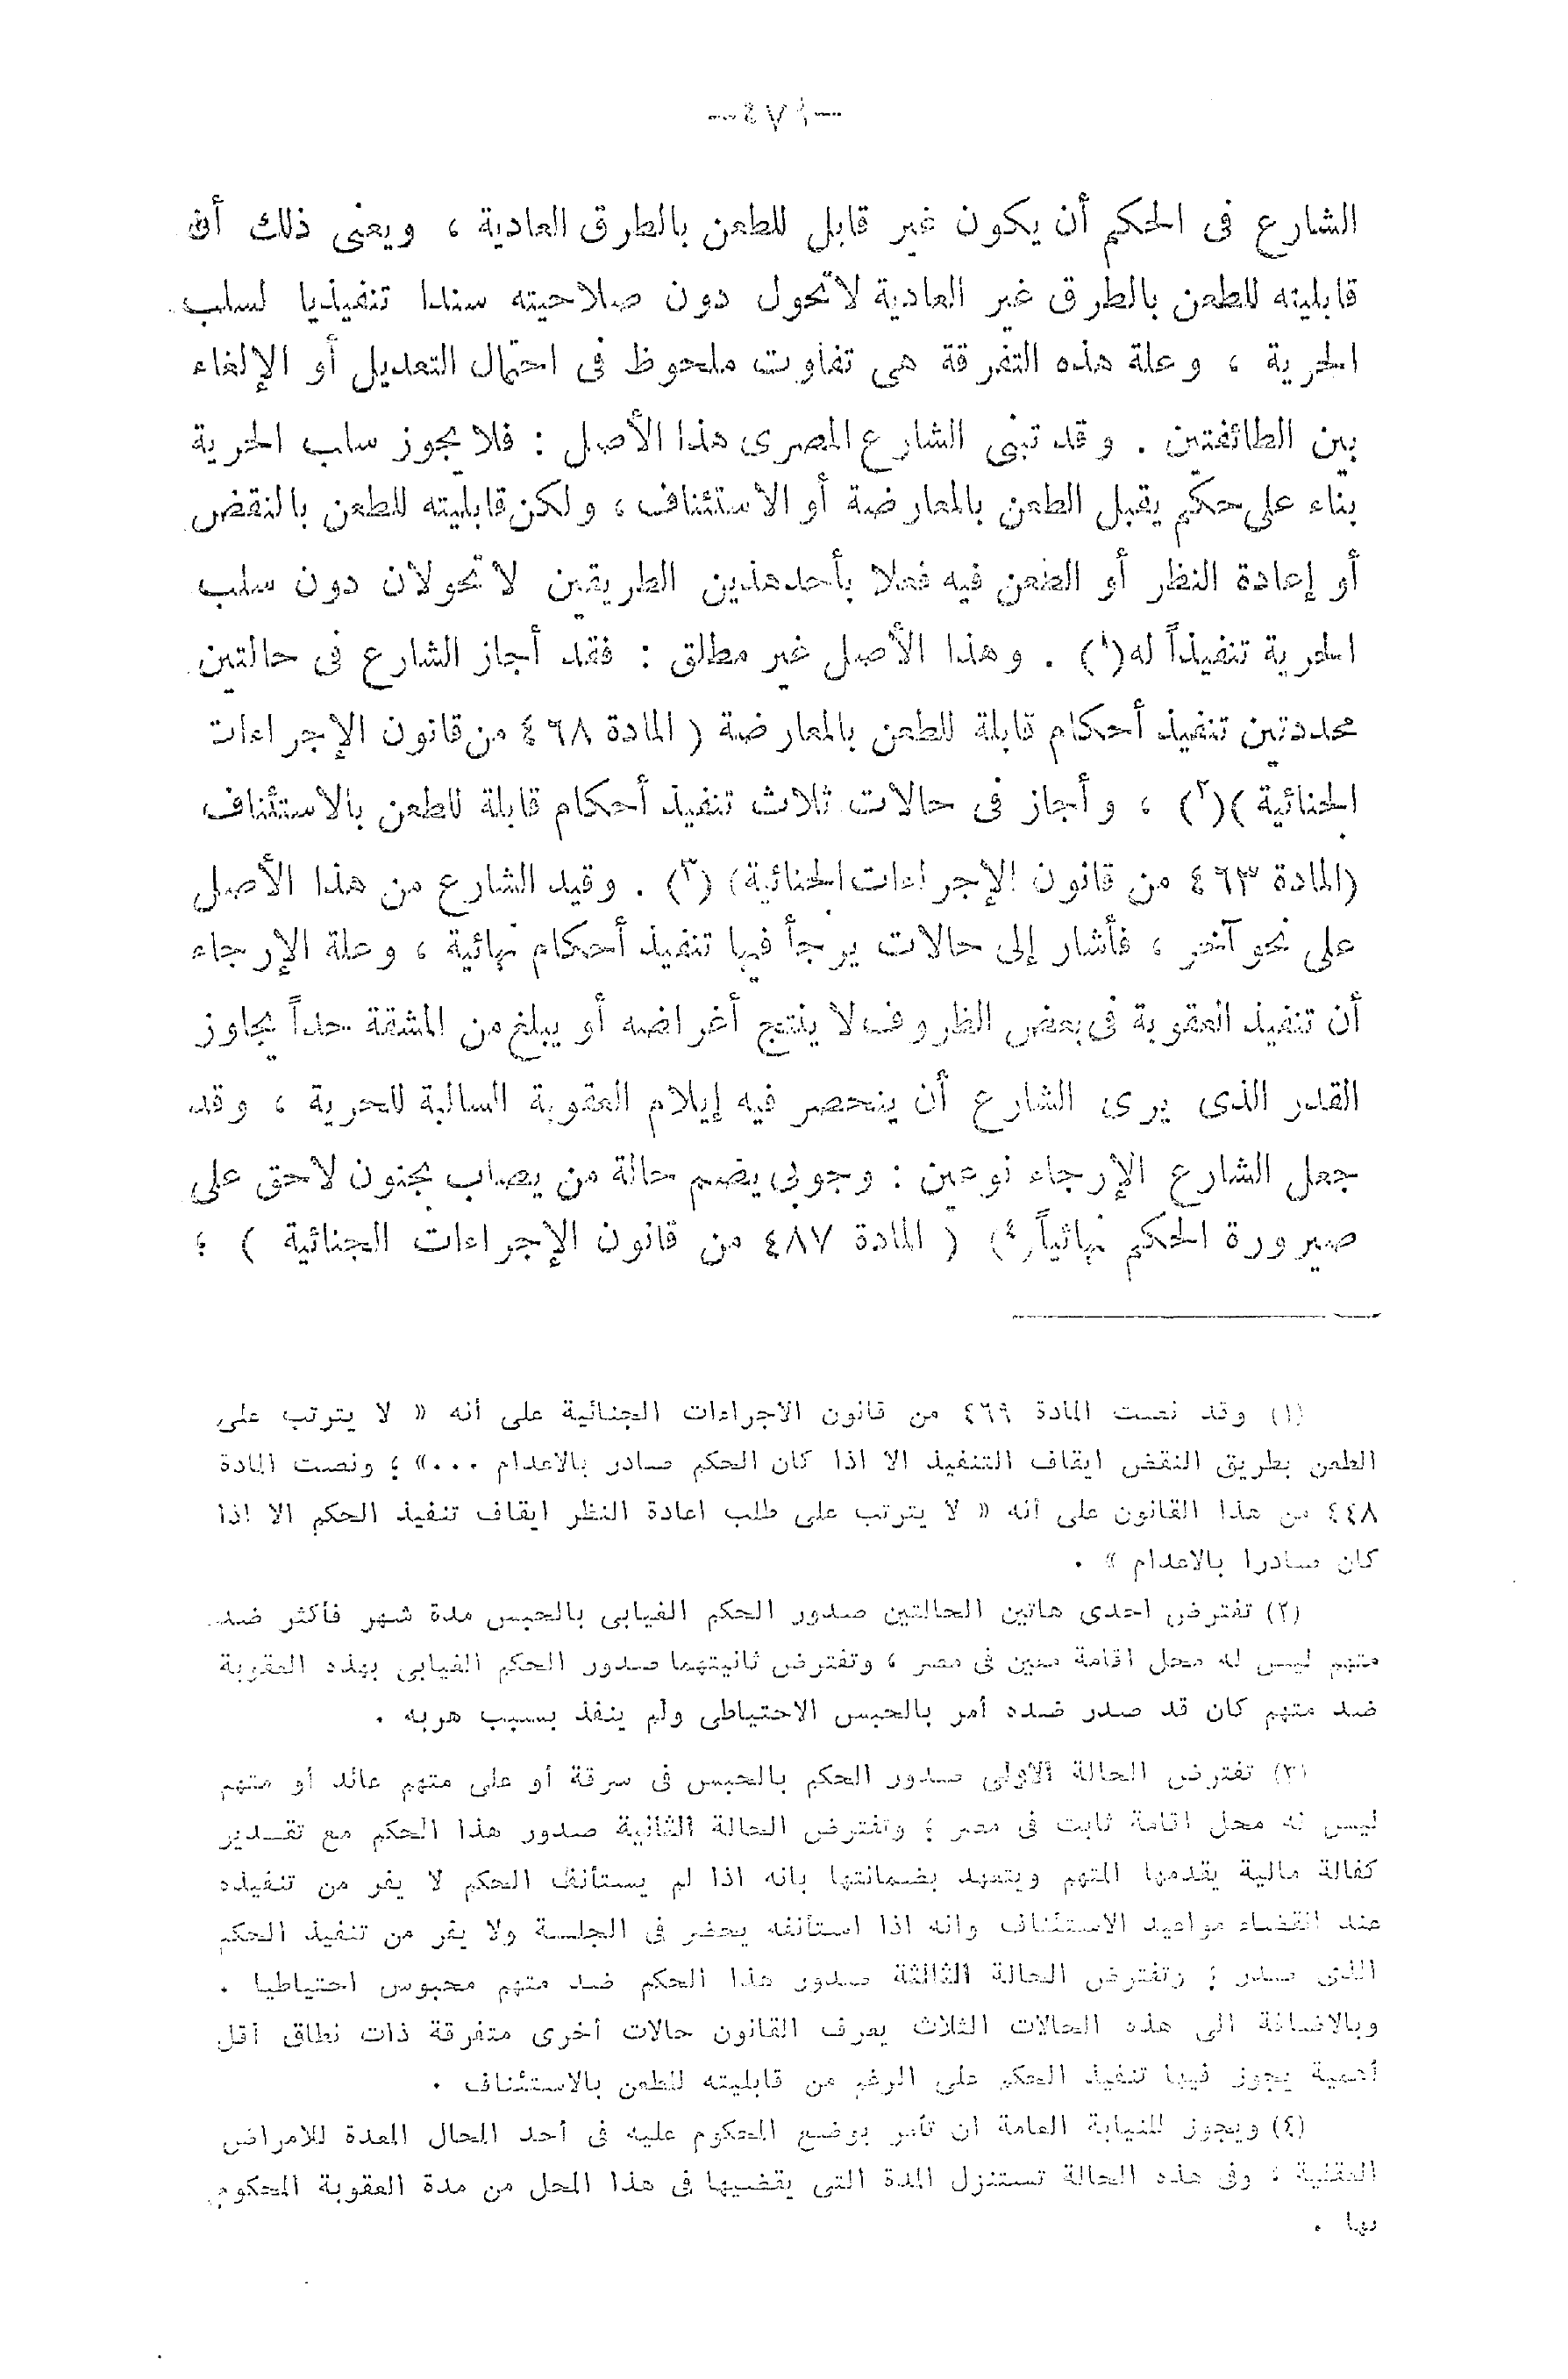 الشارع فى الحكم أن يكون غير قابل للطعن بالطرق العادية ، ويعنى ذلك أن
قابليته للطعن بالطرق غير العادية لا تحول دون صلاحيته سندا تنفيذيا لسلب
الحرية ، وعلة هذه التفرقة هى تفاوت ملحوظ فى احتمال التعديل أو الإلغاء
بين الطائفتين . وقد تبنى الشارع المصرى هذا الأصل : فلا يجوز سلب الحرية
بناء على حكم يقبل الطعن بالمعارضة أو الاستئناف ، ولكن قابليته للطعن بالنقض
أو إعادة النظر أو الطعن فيه فعلا بأحد هذين الطريقين لا تحولان دون سلب
الحرية تنفيذاً له(١) . وهذا الأصل غير مطلق : فقد أجاز الشارع فى حالتين
محددتين تنفيذ أحكام قابلة للطعن بالمعارضة ( المادة ٤٦٨ من قانون الإجراءات
الجنائية )(٢) ، وأجاز فى حالات ثلاث تنفيذ أحكام قابلة للطعن بالاستئناف
(المادة ٤٦٣ من قانون الإجراءات الجنائية) (٣) . وقيد الشارع من هذا الأصل
على نحو آخر ، فأشار إلى حالات يرجأ فيها تنفيذ أحكام نهائية ، وعلة الإرجاء
أن تنفيذ العقوبة فى بعض الظروف لا ينتج أغراضه أو يبلغ من المشقة حداً يجاوز
القدر الذى يرى الشارع أن ينحصر فيه إيلام العقوبة السالبة للحرية ، وقد
جعل الشارع الإرجاء نوعين : وجوبى يضم حالة من يصاب بجنون لاحق على
صيرورة الحكم نهائياً(٤) ( المادة ٤٨٧ من قانون الإجراءات الجنائية ) ؛
(١) وقد نصت المادة ٤٦٩ من قانون الاجراءات الجنائية على أنه « لا يترتب على
الطعن بطريق النقض ايقاف التنفيذ الا اذا كان الحكم صادر بالاعدام ...» ؛ ونصت المادة
٤٤٨ من هذا القانون على أنه « لا يترتب على طلب اعادة النظر ايقاف تنفيذ الحكم الا اذا
كان صادرا بالاعدام » .
(٢) تفترض احدى هاتين الحالتين صدور الحكم الغيابى بالحبس مدة شهر فأكثر ضد
متهم ليس له محل اقامة معين فى مصر ، وتفترض ثانيتهما صدور الحكم الغيابى بهذه العقوبة
ضد متهم كان قد صدر ضده أمر بالحبس الاحتياطى ولم ينفذ بسبب هربه .
(٣) تفترض الحالة الأولى صدور الحكم بالحبس فى سرقة أو على متهم عائد أو متهم
ليس له محل اقامة ثابت فى مصر ؛ وتفترض الحالة الثانية صدور هذا الحكم مع تقــدير
كفالة مالية يقدمها المتهم ويتعهد بضمانتها بأنه اذا لم يستأنف الحكم لا يفر من تنفيذه
عند انقضاء مواعيد الاستئناف وانه اذا استأنفه يحضر فى الجلسة ولا يفر من تنفيذ الحكم
الذى صدر ؛ وتفترض الحالة الثالثة صدور هذا الحكم ضد متهم محبوس احتياطيا .
وبالاضافة الى هذه الحالات الثلاث يعرف القانون حالات أخرى متفرقة ذات نطاق أقل
أهمية يجوز فيها تنفيذ الحكم على الرغم من قابليته للطعن بالاستئناف .
(٤) ويجوز للنيابة العامة ان تأمر بوضع المحكوم عليه فى أحد المحال المعدة للامراض
العقلية ؛ وفى هذه الحالة تستنزل المدة التى يقضيها فى هذا المحل من مدة العقوبة المحكوم
بها .